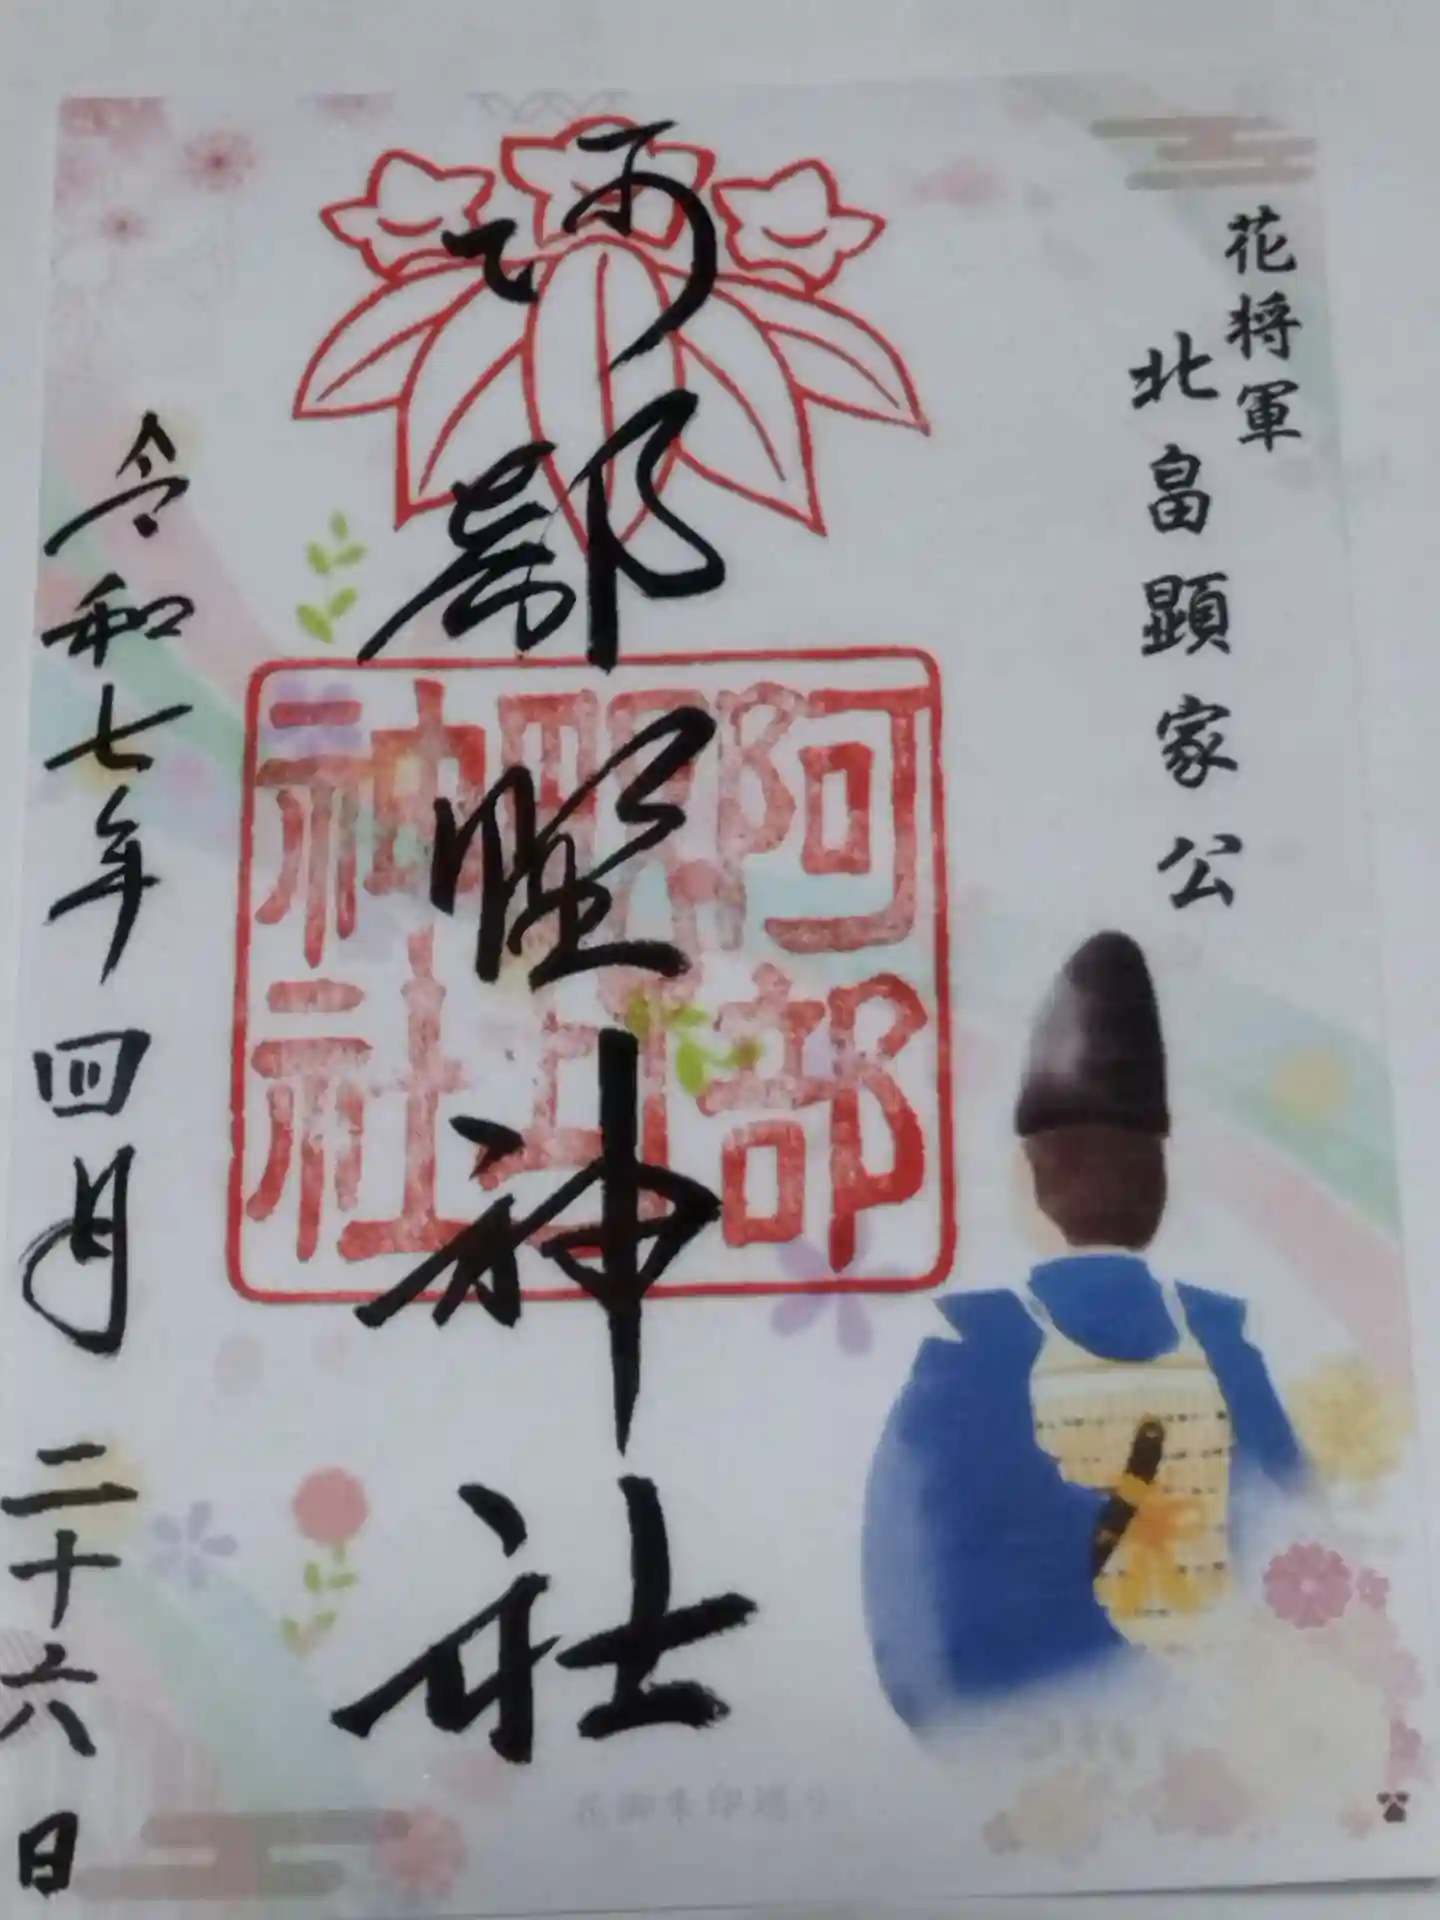 花将軍
北畠顕家公
阿部野神社
阿部野神社
令和七年四月二十六日
花御朱印巡り